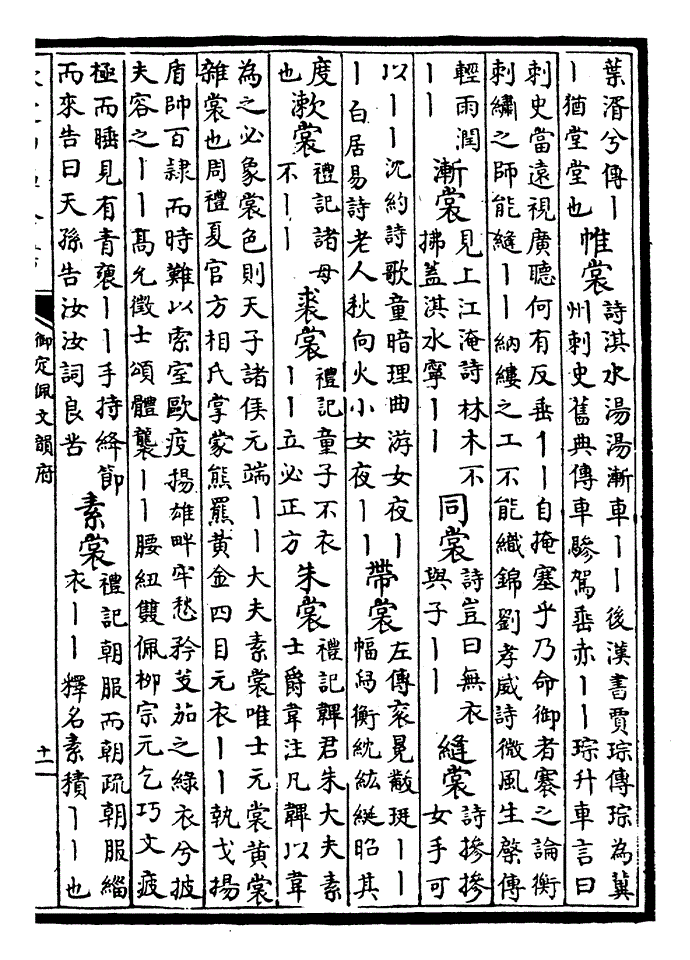 葉湑兮傳丨
丨猶堂堂也
帷裳
詩淇水湯湯漸車丨丨後漢書賈琮傳琮為冀
州刺史舊典傳車驂駕垂赤丨丨琮升車言曰
刺史當遠視廣聽何有反垂丨丨自掩塞乎乃命御者褰之論衡
刺繡之師能縫丨丨納縷之工不能織錦劉孝威詩微風生檠傳
輕雨潤
丨丨
漸裳
見上江淹詩林木不
拂蓋淇水寧丨丨
同裳
詩豈曰無衣
與子丨丨
縫裳
詩摻摻
女手可
以丨丨沈約詩歌童暗理曲游女夜丨
丨白居易詩老人秋向火小女夜丨丨
帶裳
左傳袞冕黻珽丨丨
幅舄衡紞紘綖昭其
度
也
漱裳
禮記諸母
不丨丨
裘裳
禮記童子不衣
丨丨立必正方
朱裳
禮記韠君朱大夫素
士爵韋注凡韠以韋
為之必象裳色則天子諸侯元端丨丨大夫素裳唯士元裳黃裳
雜裳也周禮夏官方相氏掌蒙熊羆黃金四目元衣丨丨執戈揚
盾帥百隸而時難以索室歐疫揚雄畔牢愁矜芰茄之綠衣兮披
夫容之丨丨高允徵士頌體襲丨丨腰紐雙佩柳宗元乞巧文疲
極而睡見有青褎丨丨手持絳節
而來告曰天孫告汝汝詞良苦
素裳
禮記朝服而朝疏朝服緇
衣丨丨釋名素積丨丨也
御定佩文韻府
十一